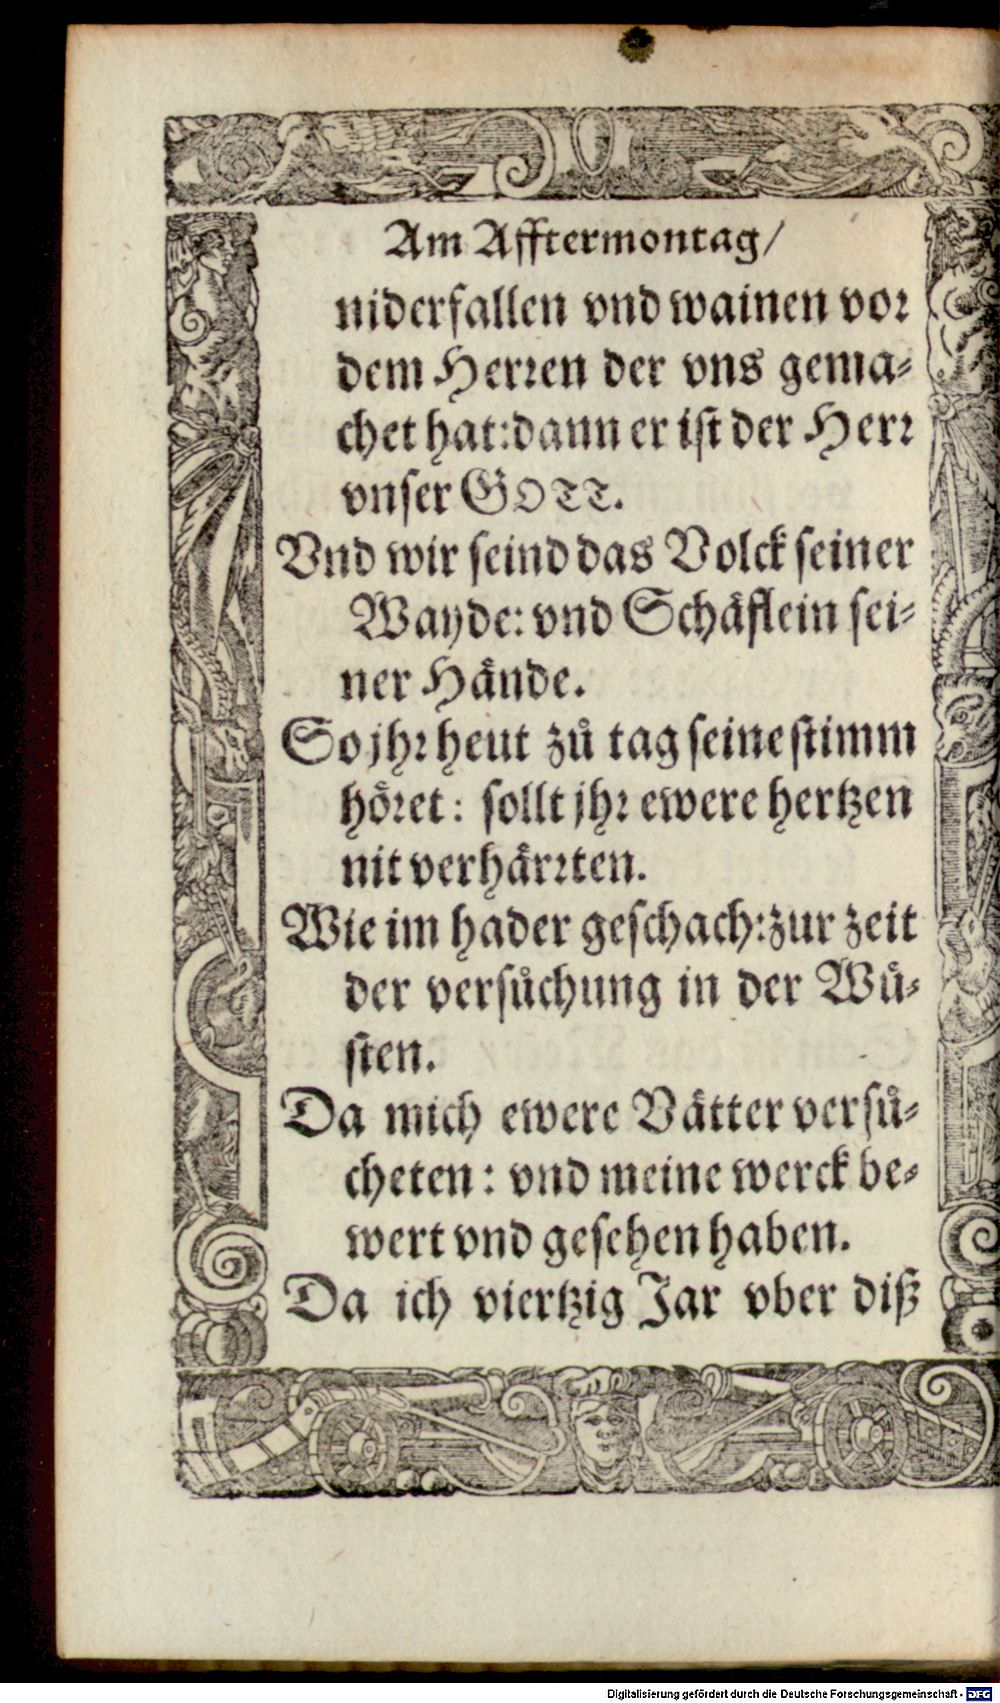 Am Afftermontag/
niderfallen vnd wainen vor
dem Herren der vns gema⸗
chet hat:dann er ist der Herr
vnser GOTT.
Vnd wir seind das Volck seiner
Wayde: vnd Schäflein sei⸗
ner Hände.
So jhr heut zů tag seine stimm
höret: sollt jhr ewere hertzen
nit verhärrten.
Wie im hader geschach:zur zeit
der versůchung in der Wü⸗
sten.
Da mich ewere Vätter versů⸗
cheten: vnd meine werck be⸗
wert vnd gesehen haben.
Da ich viertzig Jar vber diß
Digitalisierung gefördert durch die Deutsche Forschungsgemeinschaft - DFG